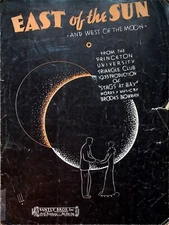 EAST of the SUN
(AND WEST OF THE MOON)
FROM THE
PRINCETON
UNIVERSITY
TRIANGLE CLUB
1935 PRODUCTION
OF
"STAGS AT BAY"
WORDS & MUSIC BY
BROOKS BOWMAN
SANTLY BROS. INC.